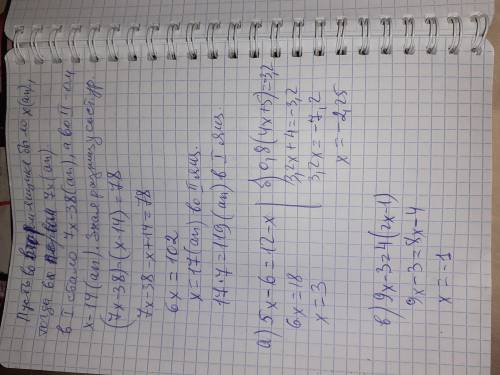 Пусть во втор. ящике было x(ап),
тогда в первом 7x(ап)
в I стало 7x-38(ап), а во II-ом
x-14(ап). Зная разницу сост. ур.
(7x-38)-(x-14)=78
7x-38-x+14=78
6x=102
x=17(ап) во II ящ.
17·7=119(ап) в I ящ.
а) 5x-6=12-x
6x=18
x=3
б) 0,8(4x+5)=-3,2
3,2x+4=-3,2
3,2x=-7,2
x=-2,25
в) 9x-3=4(2x-1)
9x-3=8x-4
x=-1